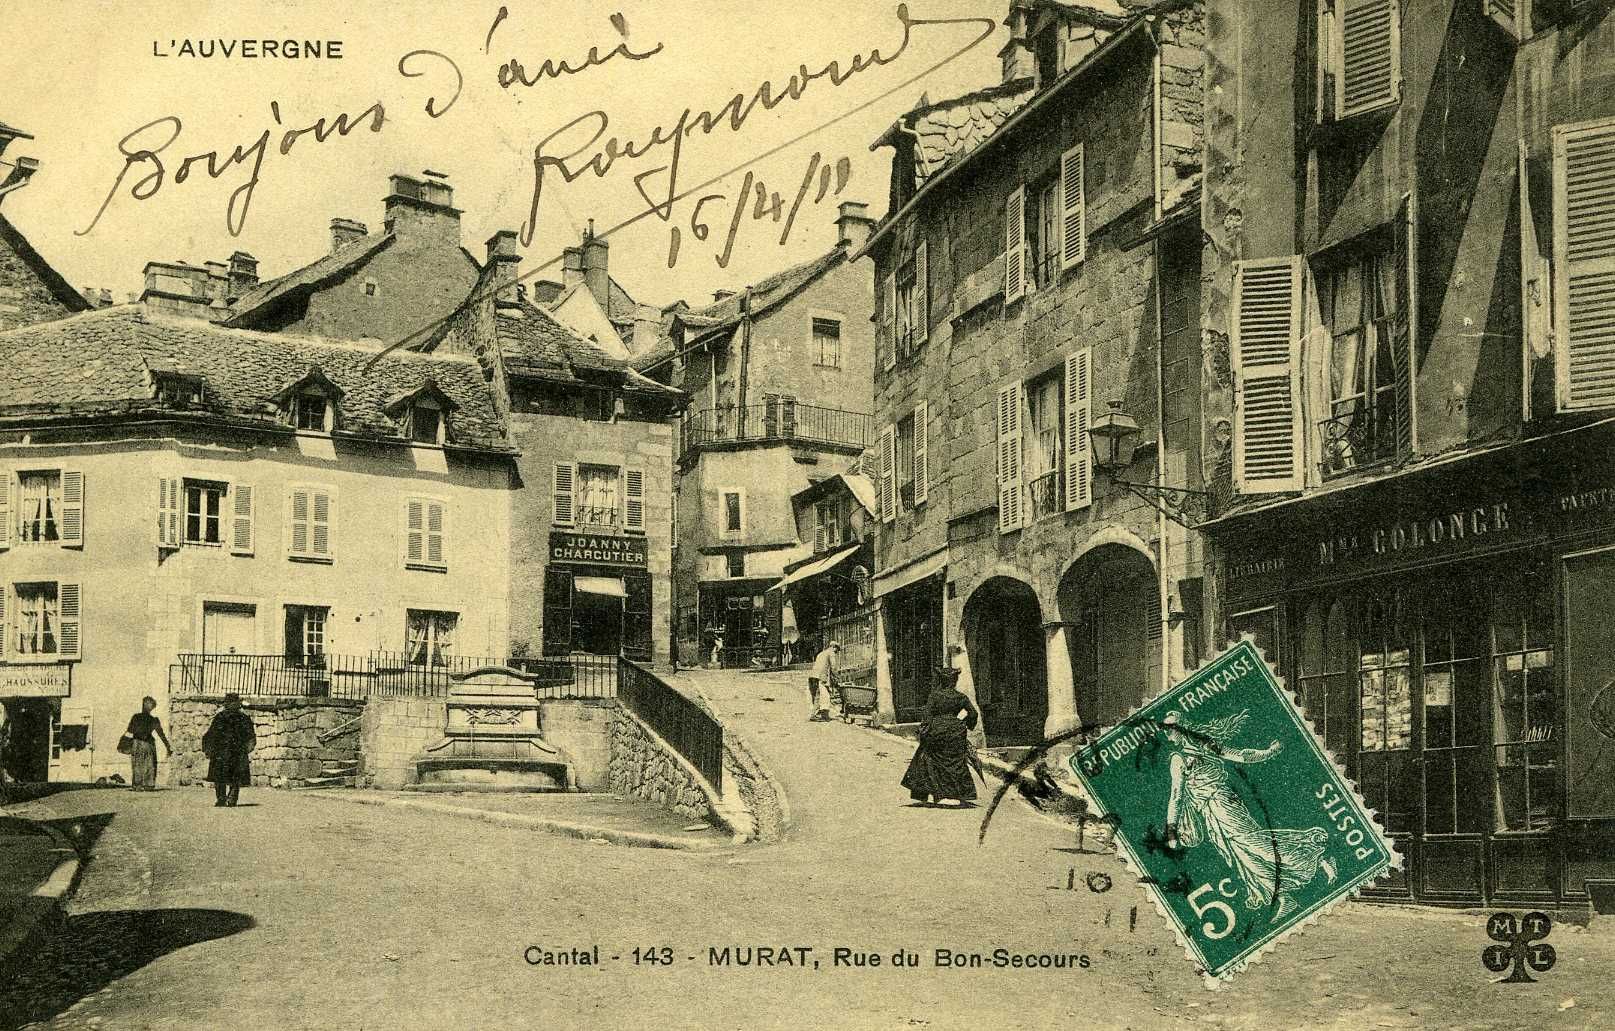 L'AUVERGNE
Bonjour d'ami
Raymond
16/4/11
JOANNY
CHARCUTIER
CHAUSSURES
LIBRAIRIE
Mme COLONGE
PAPET
RÉPUBLIQUE FRANÇAISE
POSTES
5c
16 - 4
11
Cantal - 143 - MURAT, Rue du Bon-Secours
MTIL